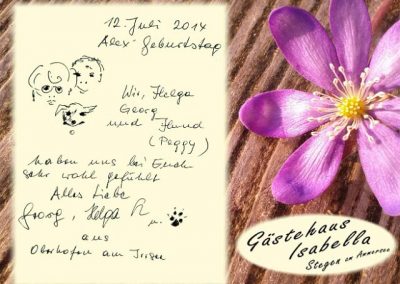 12. Juli 2014
Alex' Geburtstag
Wir, Helga
Georg
und Hund
(Peggy)
haben uns bei Euch
sehr wohl gefühlt
Alles Liebe
Georg, Helga R
u.
aus
Oberhofen am Irrsee
Gästehaus
Isabella
Stegen am Ammersee